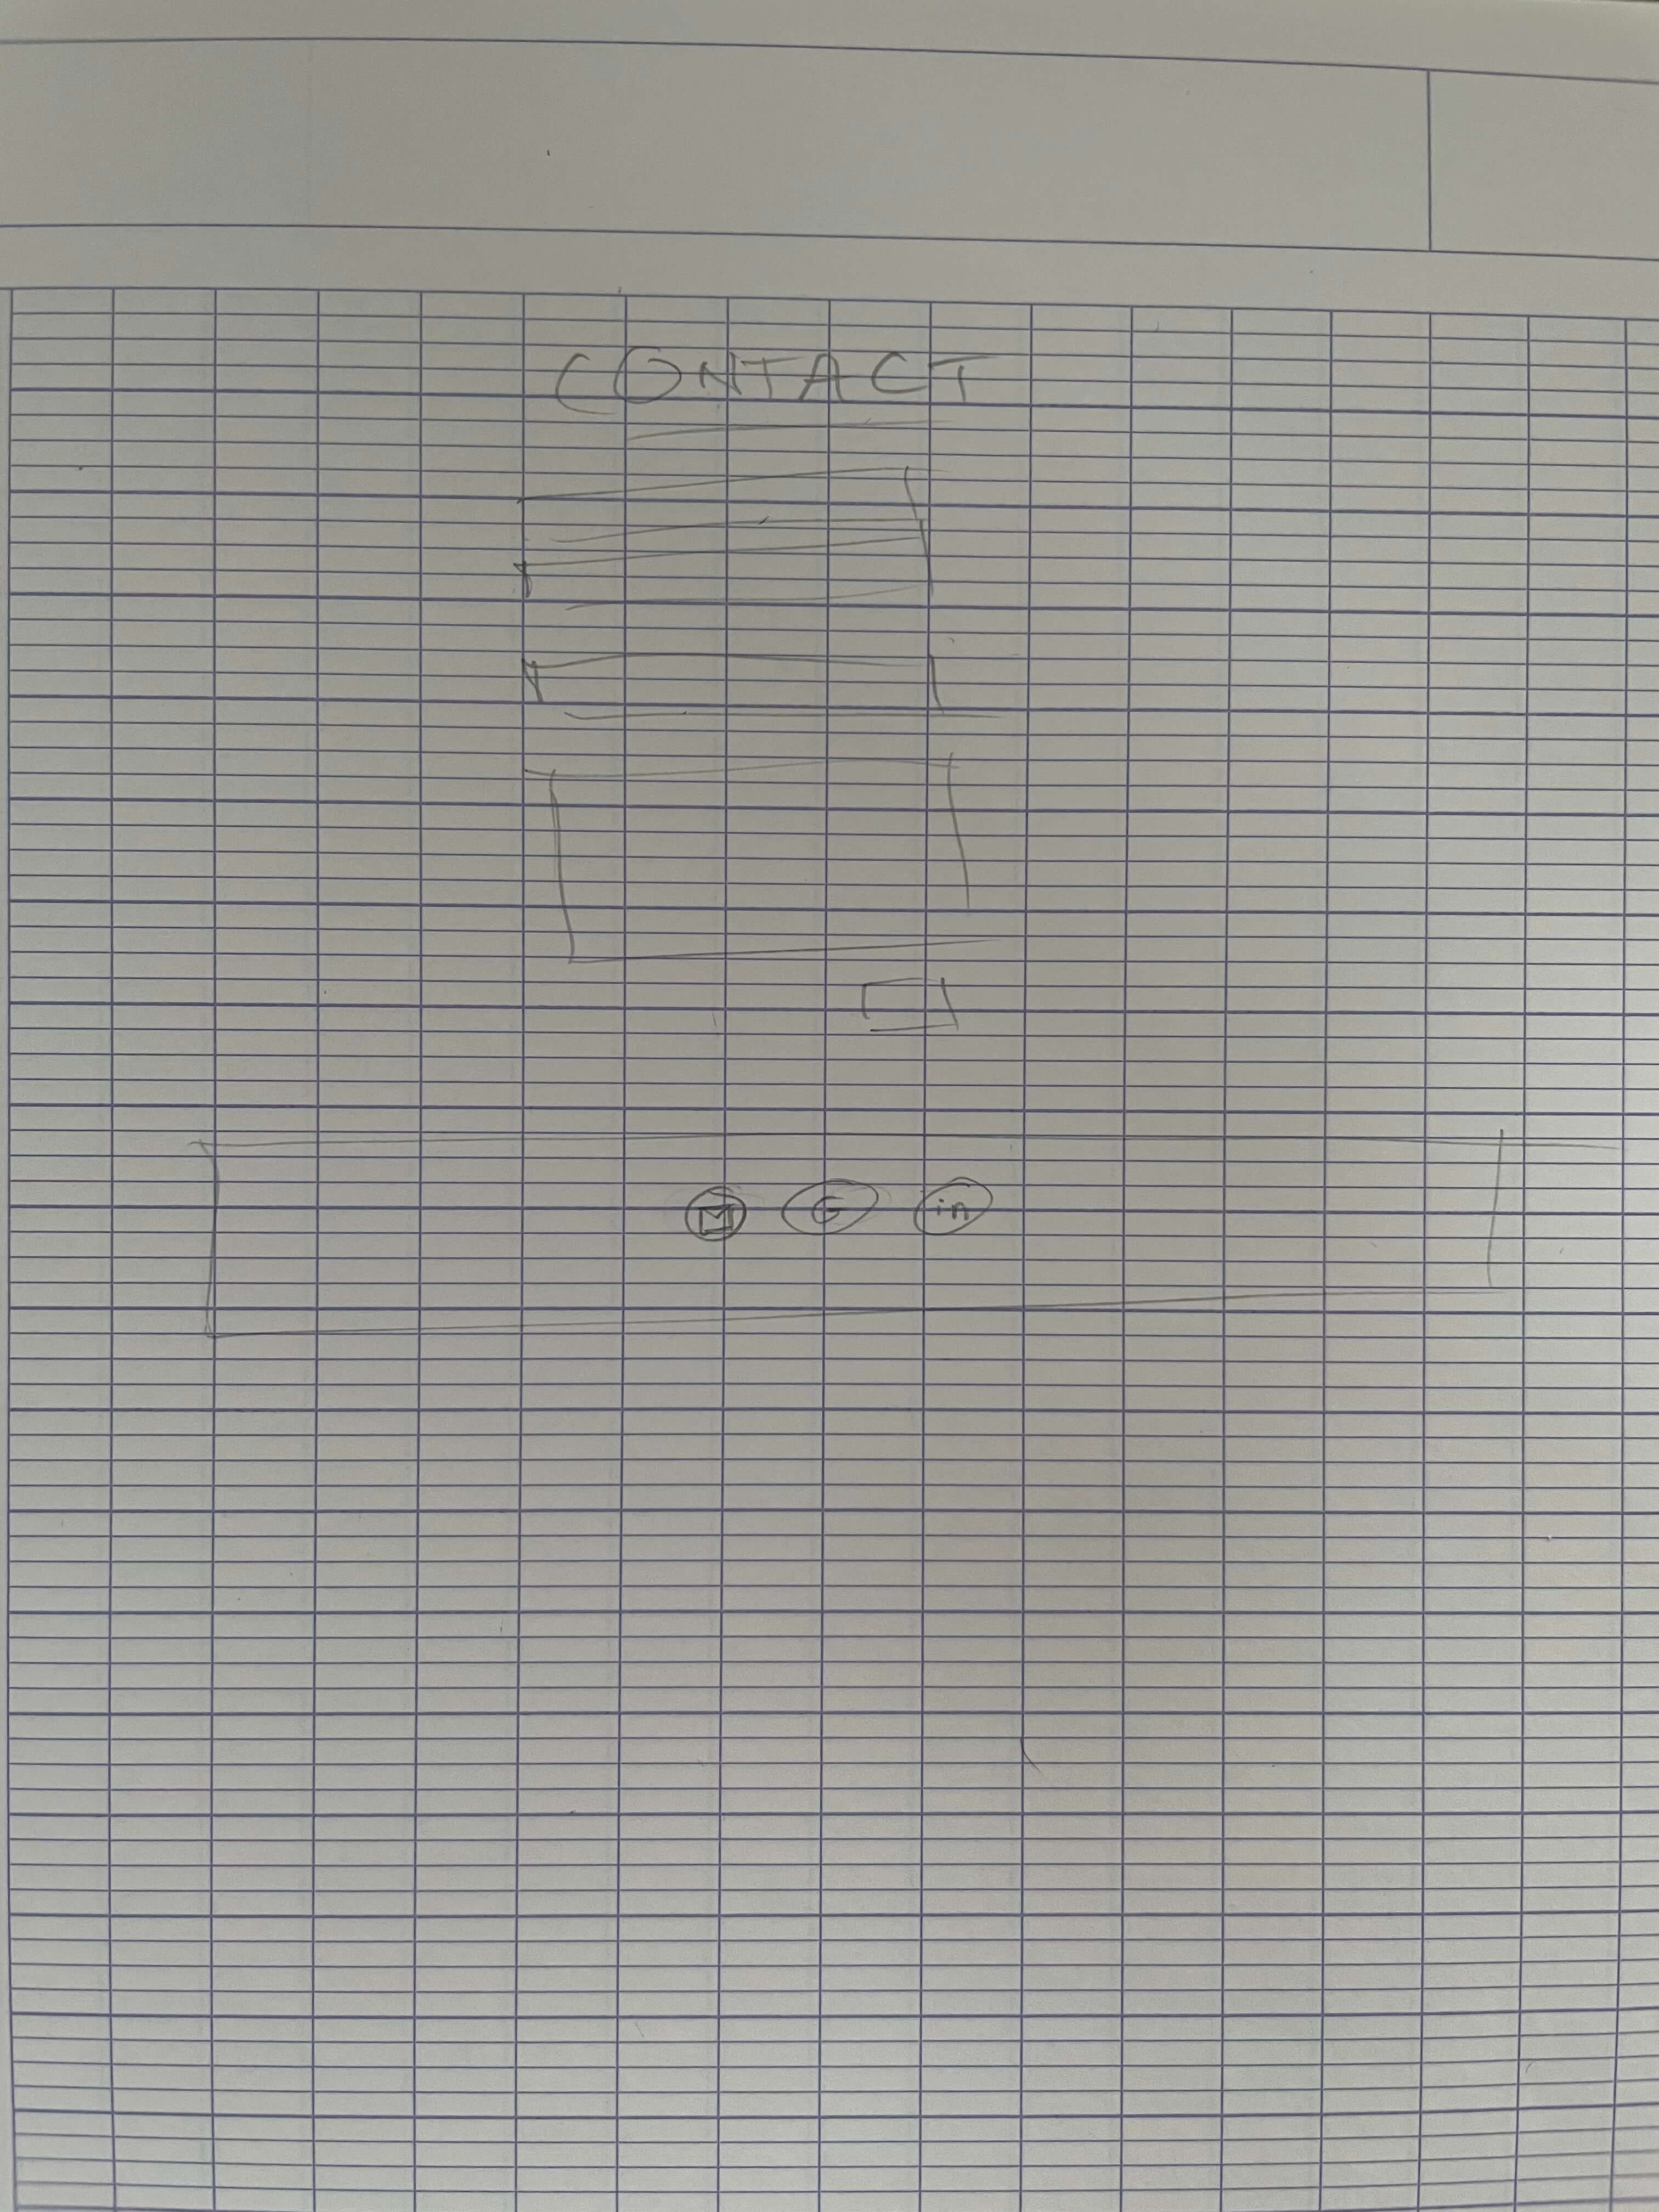 CONTACT
M G in